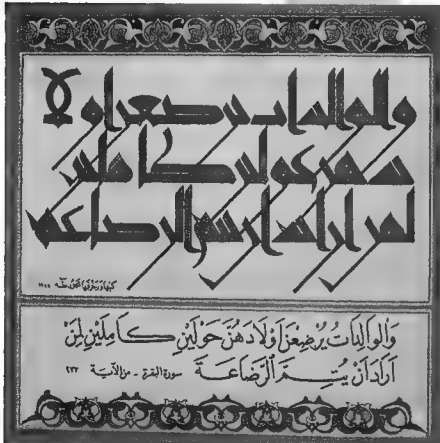 والوالدات يرضعن أولا
دهن حولين كاملين
لمن أراد أن يتم الرضاعة
كتبها وزخرفها محمود طه ١٩٨٥
وَالوَالِدَاتُ يُرْضِعْنَ أَوْلَادَهُنَّ حَوْلَيْنِ كَامِلَيْنِ لِمَنْ
أَرَادَ أَنْ يُتِمَّ الرَّضَاعَةَ سورة البقرة - من الآية ٢٣٣